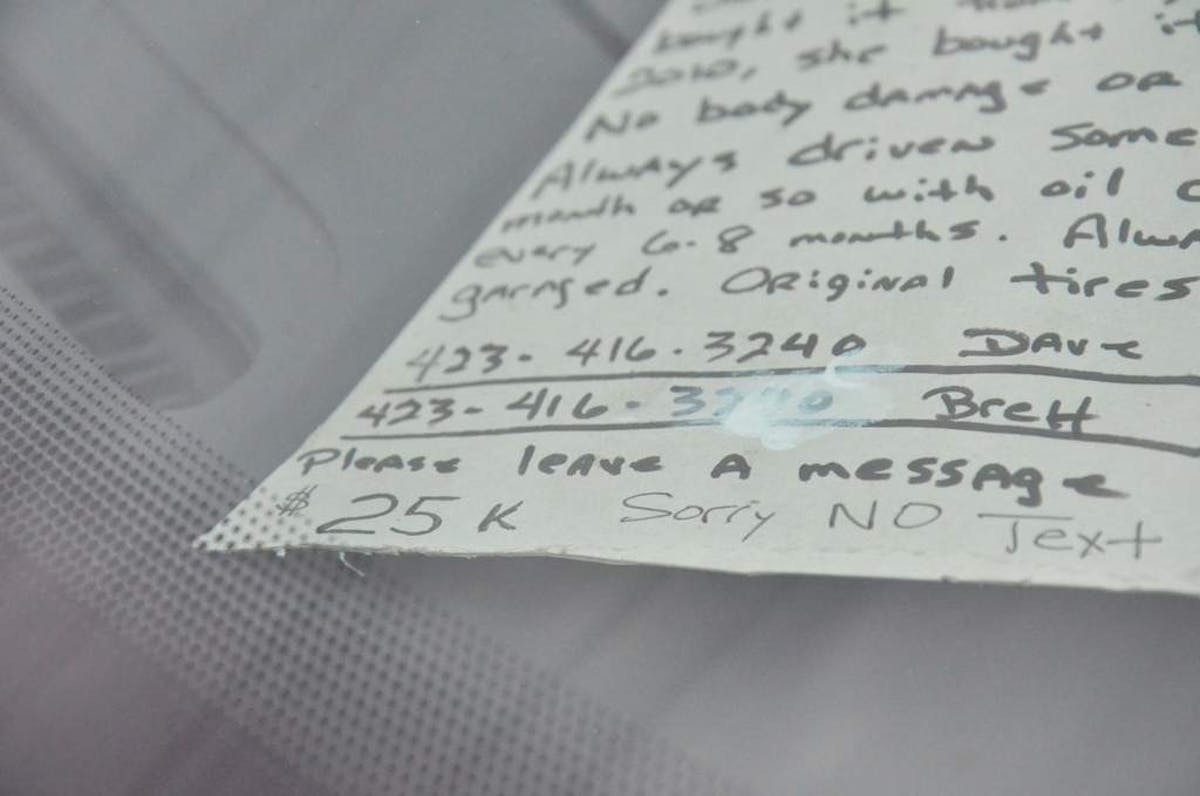 bought it
2010, she bought it
No body damage OR
Always driven Some
month or so with oil
every 6-8 months. Alwa
garaged. Original tires
423-416-3240 Dave
423-416-3240 Brett
Please leave A message
$25K Sorry NO Text